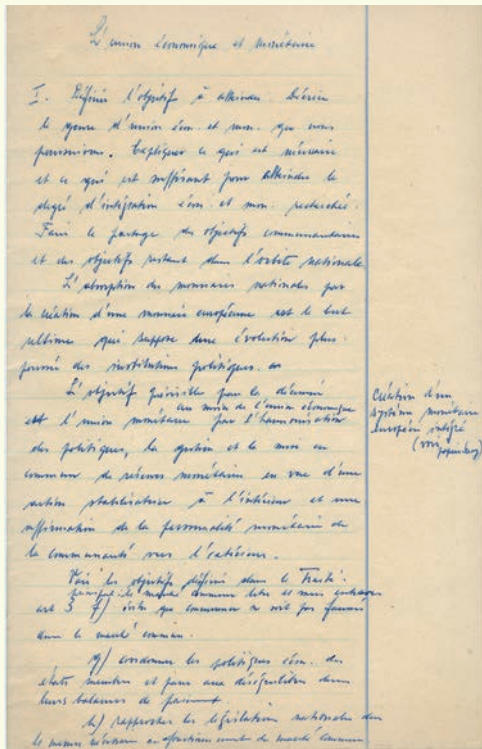 L'union économique et monétaire
I. Définir l'objectif à atteindre. Décrire
le genre d'union écon. et mon. que nous
poursuivons. Expliquer ce qui est nécessaire
et ce qui est suffisant pour atteindre le
degré d'intégration écon. et mon. recherchée.
Faire le partage des objectifs communautaires
et des objectifs restant dans l'orbite nationale
L'absorption des monnaies nationales par
la création d'une monnaie européenne est le but
ultime qui suppose une évolution plus
poussée des institutions politiques.
L'objectif prévisible pour la décennie
au moins de l'union économique
est l'union monétaire par l'harmonisation
des politiques, la gestion et la mise en
commun de réserves monétaires en vue d'une
action stabilisatrice à l'intérieur et une
affirmation de la personnalité monétaire de
la communauté vers l'extérieur.
Création d'un
système monétaire
européen intégré
(voir
Voir les objectifs définis dans le Traité.
le marché commun libre et sans entraves
art 3 f) éviter que concurrence ne soit pas faussée
dans le marché commun.
g) coordonner les politiques écon. des
états membres et parer aux déséquilibres dans
leurs balances de paiement
h) rapprocher les législations nationales dans
la mesure nécessaire au fonctionnement du marché commun